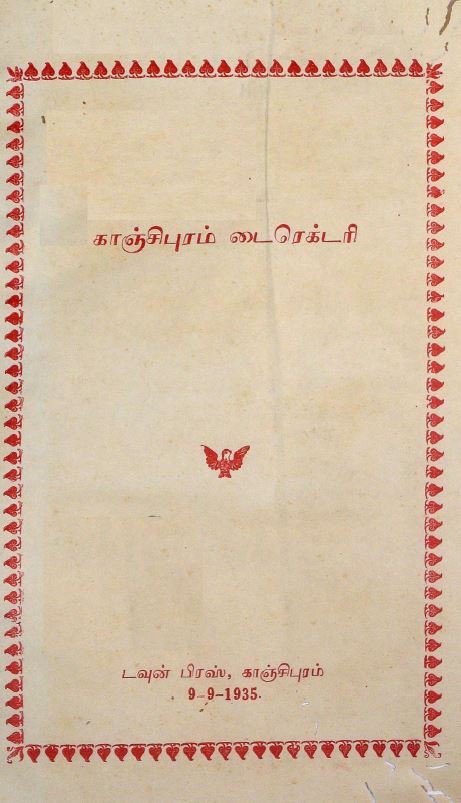 காஞ்சிபுரம் டைரெக்டரி
டவுன் பிரஸ், காஞ்சிபுரம்
9-9-1935.